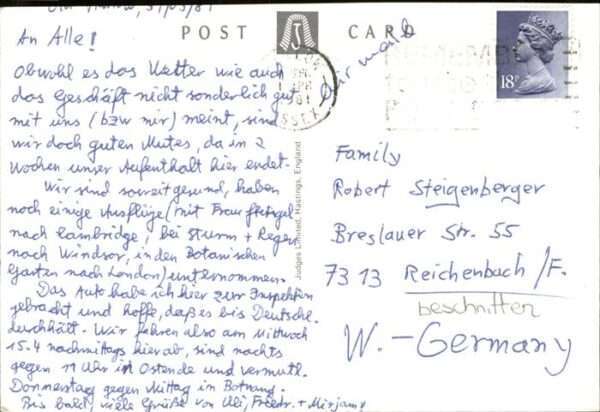 31/03/81
POST CARD
An Alle!
Air mail
18P
Obwohl es das Wetter wie auch
das Geschäft nicht sonderlich gut
mit uns (bzw mir) meint, sind
wir doch guten Mutes, da in 2
Wochen unser Aufenthalt hier endet.
Wir sind soweit gesund, haben
noch einige Ausflüge (mit Frau
nach Cambridge, bei Sturm + Regen
nach Windsor, in den Botanischen
Garten nach London) unternommen.
Das Auto habe ich hier zur Inspektion
gebracht und hoffe, daß es bis Deutschl.
durchhält. Wir fahren also am Mittwoch
15.4 nachmittags hier ab, sind nachts
gegen 11 Uhr in Ostende und vermutl.
Donnerstag gegen Mittag in Botnang.
Bis bald, viele Grüße von Uli, Friedr. + Mirjam
Judges Limited, Hastings, England
Family
Robert Steigenberger
Breslauer Str. 55
7313 Reichenbach/F.
beschnitten
W.-Germany